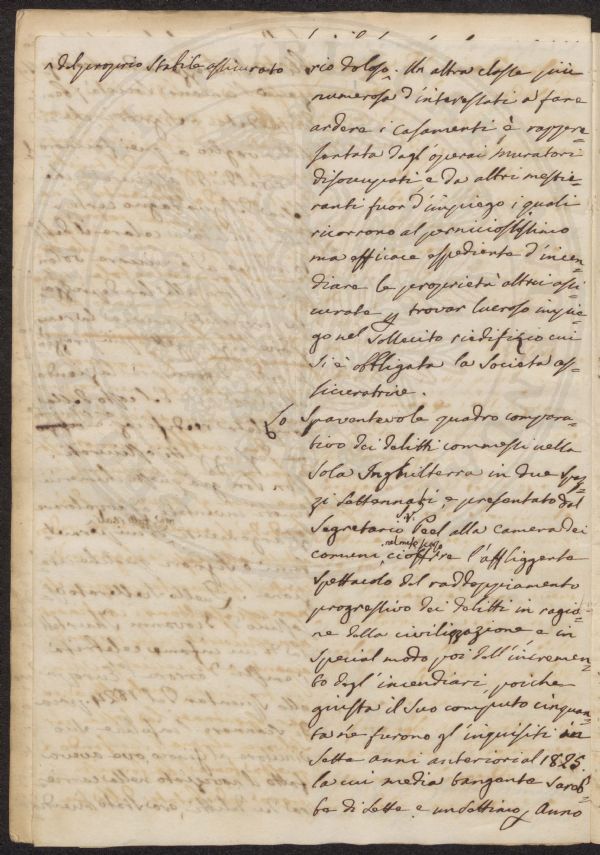 ^ del proprio stabile assicurato
rio doloso. Un altra classe più
numerosa d'interessati a fare
ardere i casamenti è rappre=
sentata dagl'operai muratori
disoccupati, e da altri mestie=
ranti fuor d'impiego i quali
ricorrono al perniciosissimo
ma efficace espediente d'incen=
diare le proprietà altrui assi=
curate p trovar lucroso impie=
go nel sollecito riedifizio cui
si è obbligata la Società as=
sicuratrice.
Lo spaventevole quadro compara=
tivo dei delitti commessi nella
sola Inghilterra in due spa=
zj settennarj, e presentato dal
Segretario Sr. Peel alla camera dei
comuni, ci offre l'affliggente
spettacolo del raddoppiamento
progressivo dei delitti in ragio=
ne della civilizzazione e in
special modo poi dell'incremen=
to degl'incendiari, poiche
giusta il suo computo cinquan=
ta ne furono gl'inquisiti in
sette anni anteriori al 1825
la cui media tangente sareb=
be di sette e un settimo p Anno